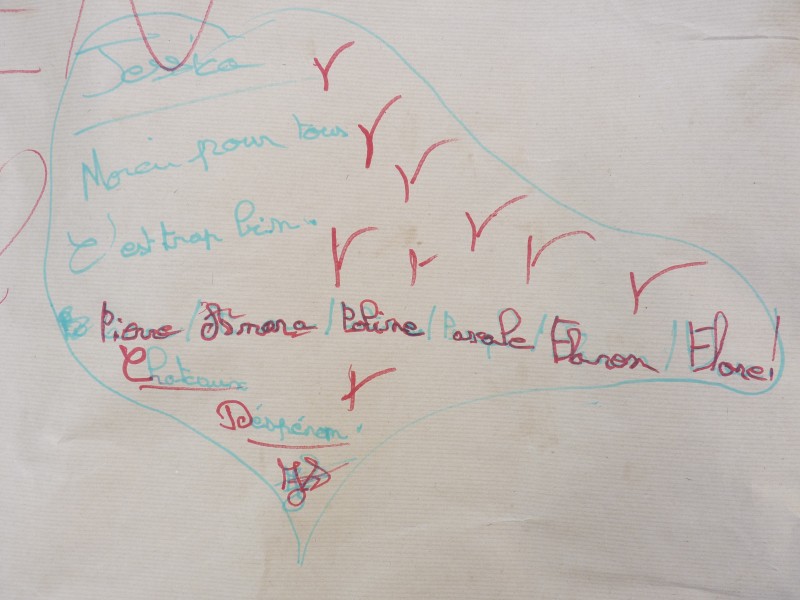 Jessica
Morci pour tous
C'est trop bien.
Pierre / Asmara / Poline / Pascale / Elaron / Elore!
Chateaux
Déspérem.